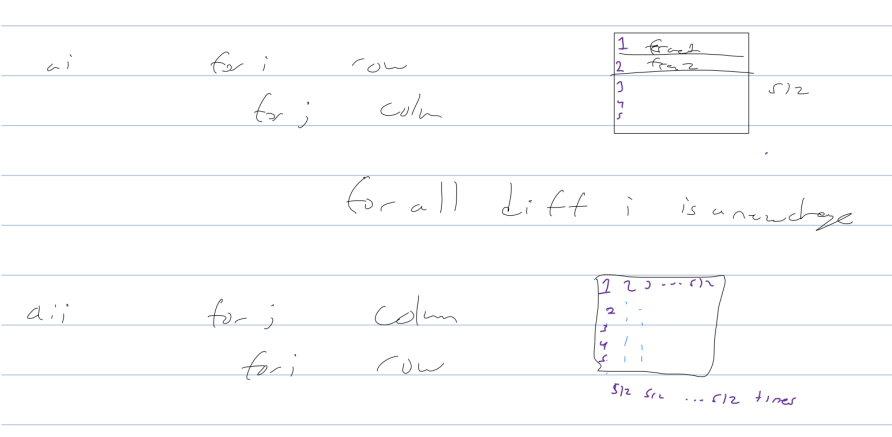 ai for i row
for j colm
1 frame1
2 frem 2
3
4
5
512
for all diff i is a new change
aii for j column
for i row
1 2 3 ... 512
2
3
4
5
512 512 ... 512 times